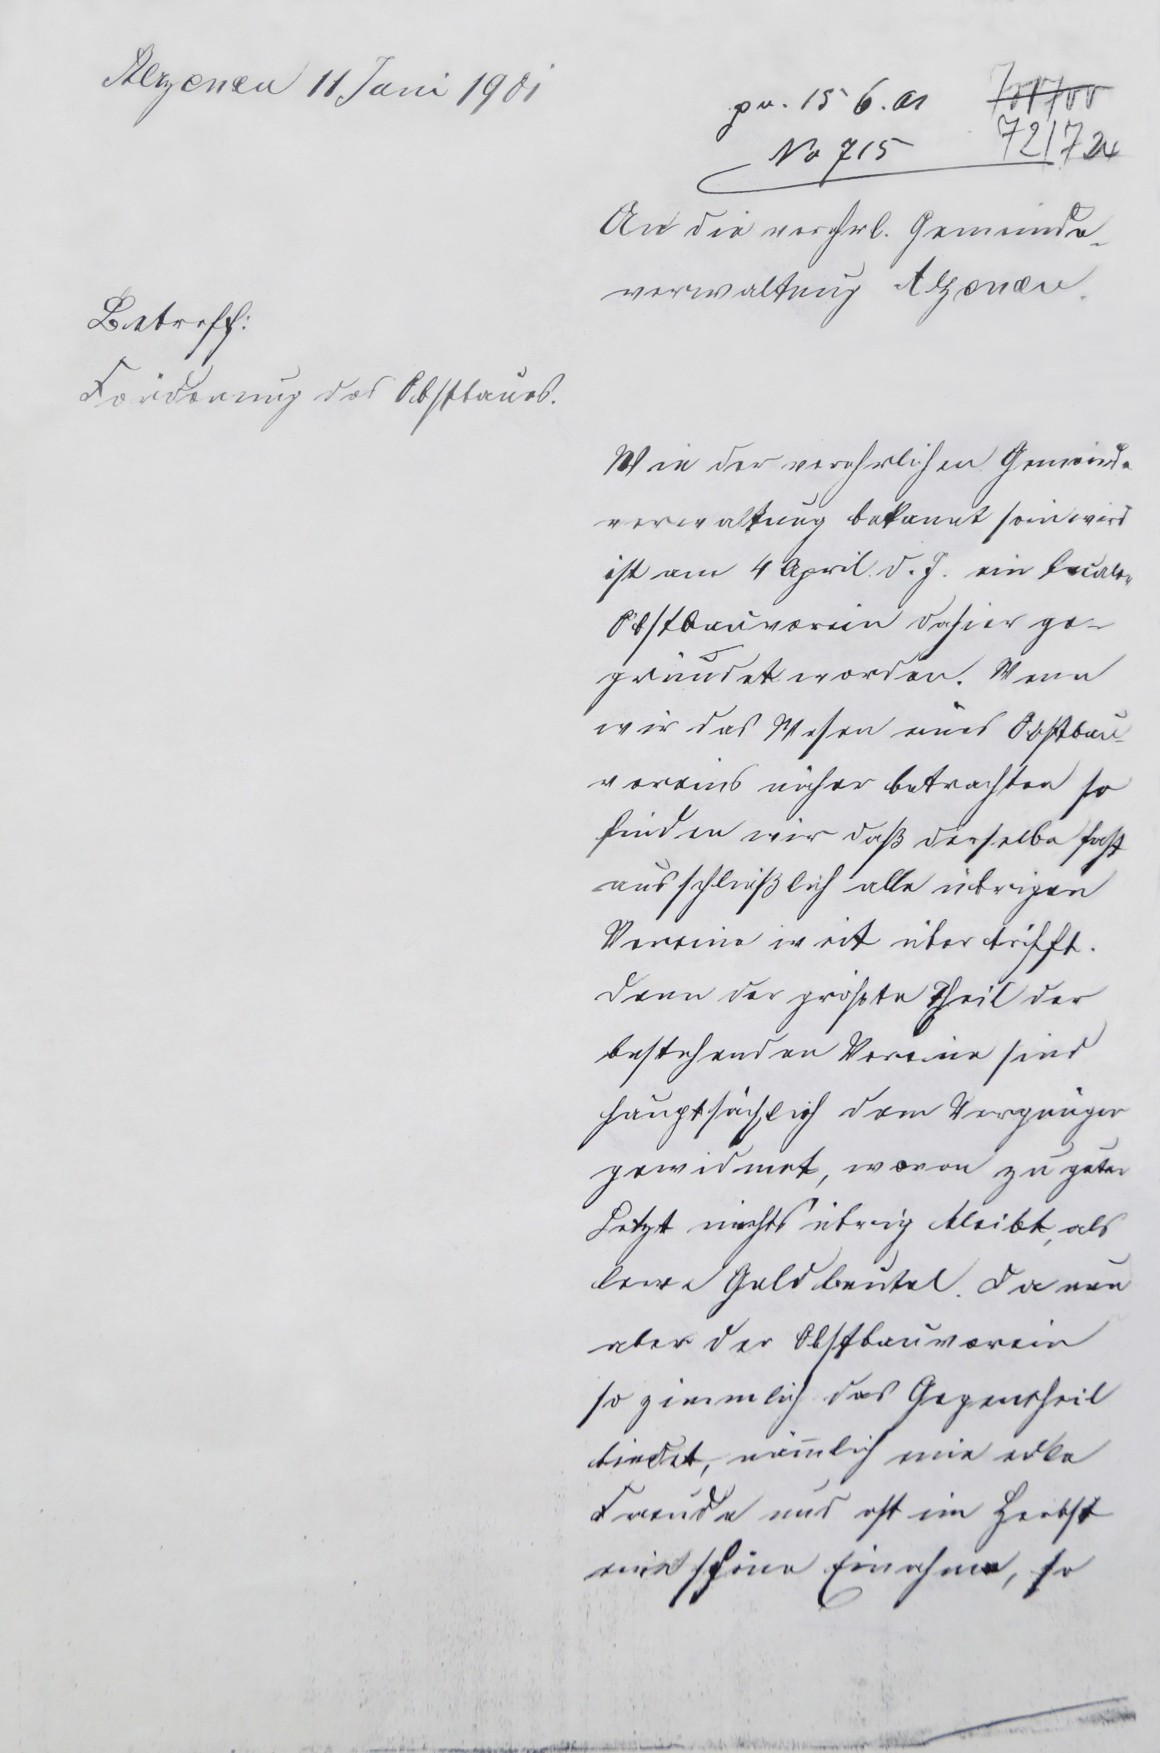 Alzenau 11 Juni 1901
pr. 15 6. 01
No 715
72172
An die verehrl. Gemeinde-
verwaltung Alzenau.
Betreff:
Förderung des Obstbaues.
Wie der verehrlichen Gemeinde
verwaltung bekannt sein wird
ist am 4 April d. J. ein localer
Obstbauverein dahier ge-
gründet worden. Wenn
wir das Wesen eines Obstbau-
vereins näher betrachten so
finden wir daß derselbe fast
ausschließlich alle übrigen
Vereine weit übertrifft.
Denn der größte Theil der
bestehenden Vereine sind
hauptsächlich dem Vergnügen
gewidmet, wovon zu guter
Letzt nichts übrig bleibt, als
leere Geldbeutel. Da nun
aber der Obstbauverein
so ziemlich das Gegentheil
bietet, nämlich eine edle
Freude und oft im Herbst
eine schöne Einahme, so